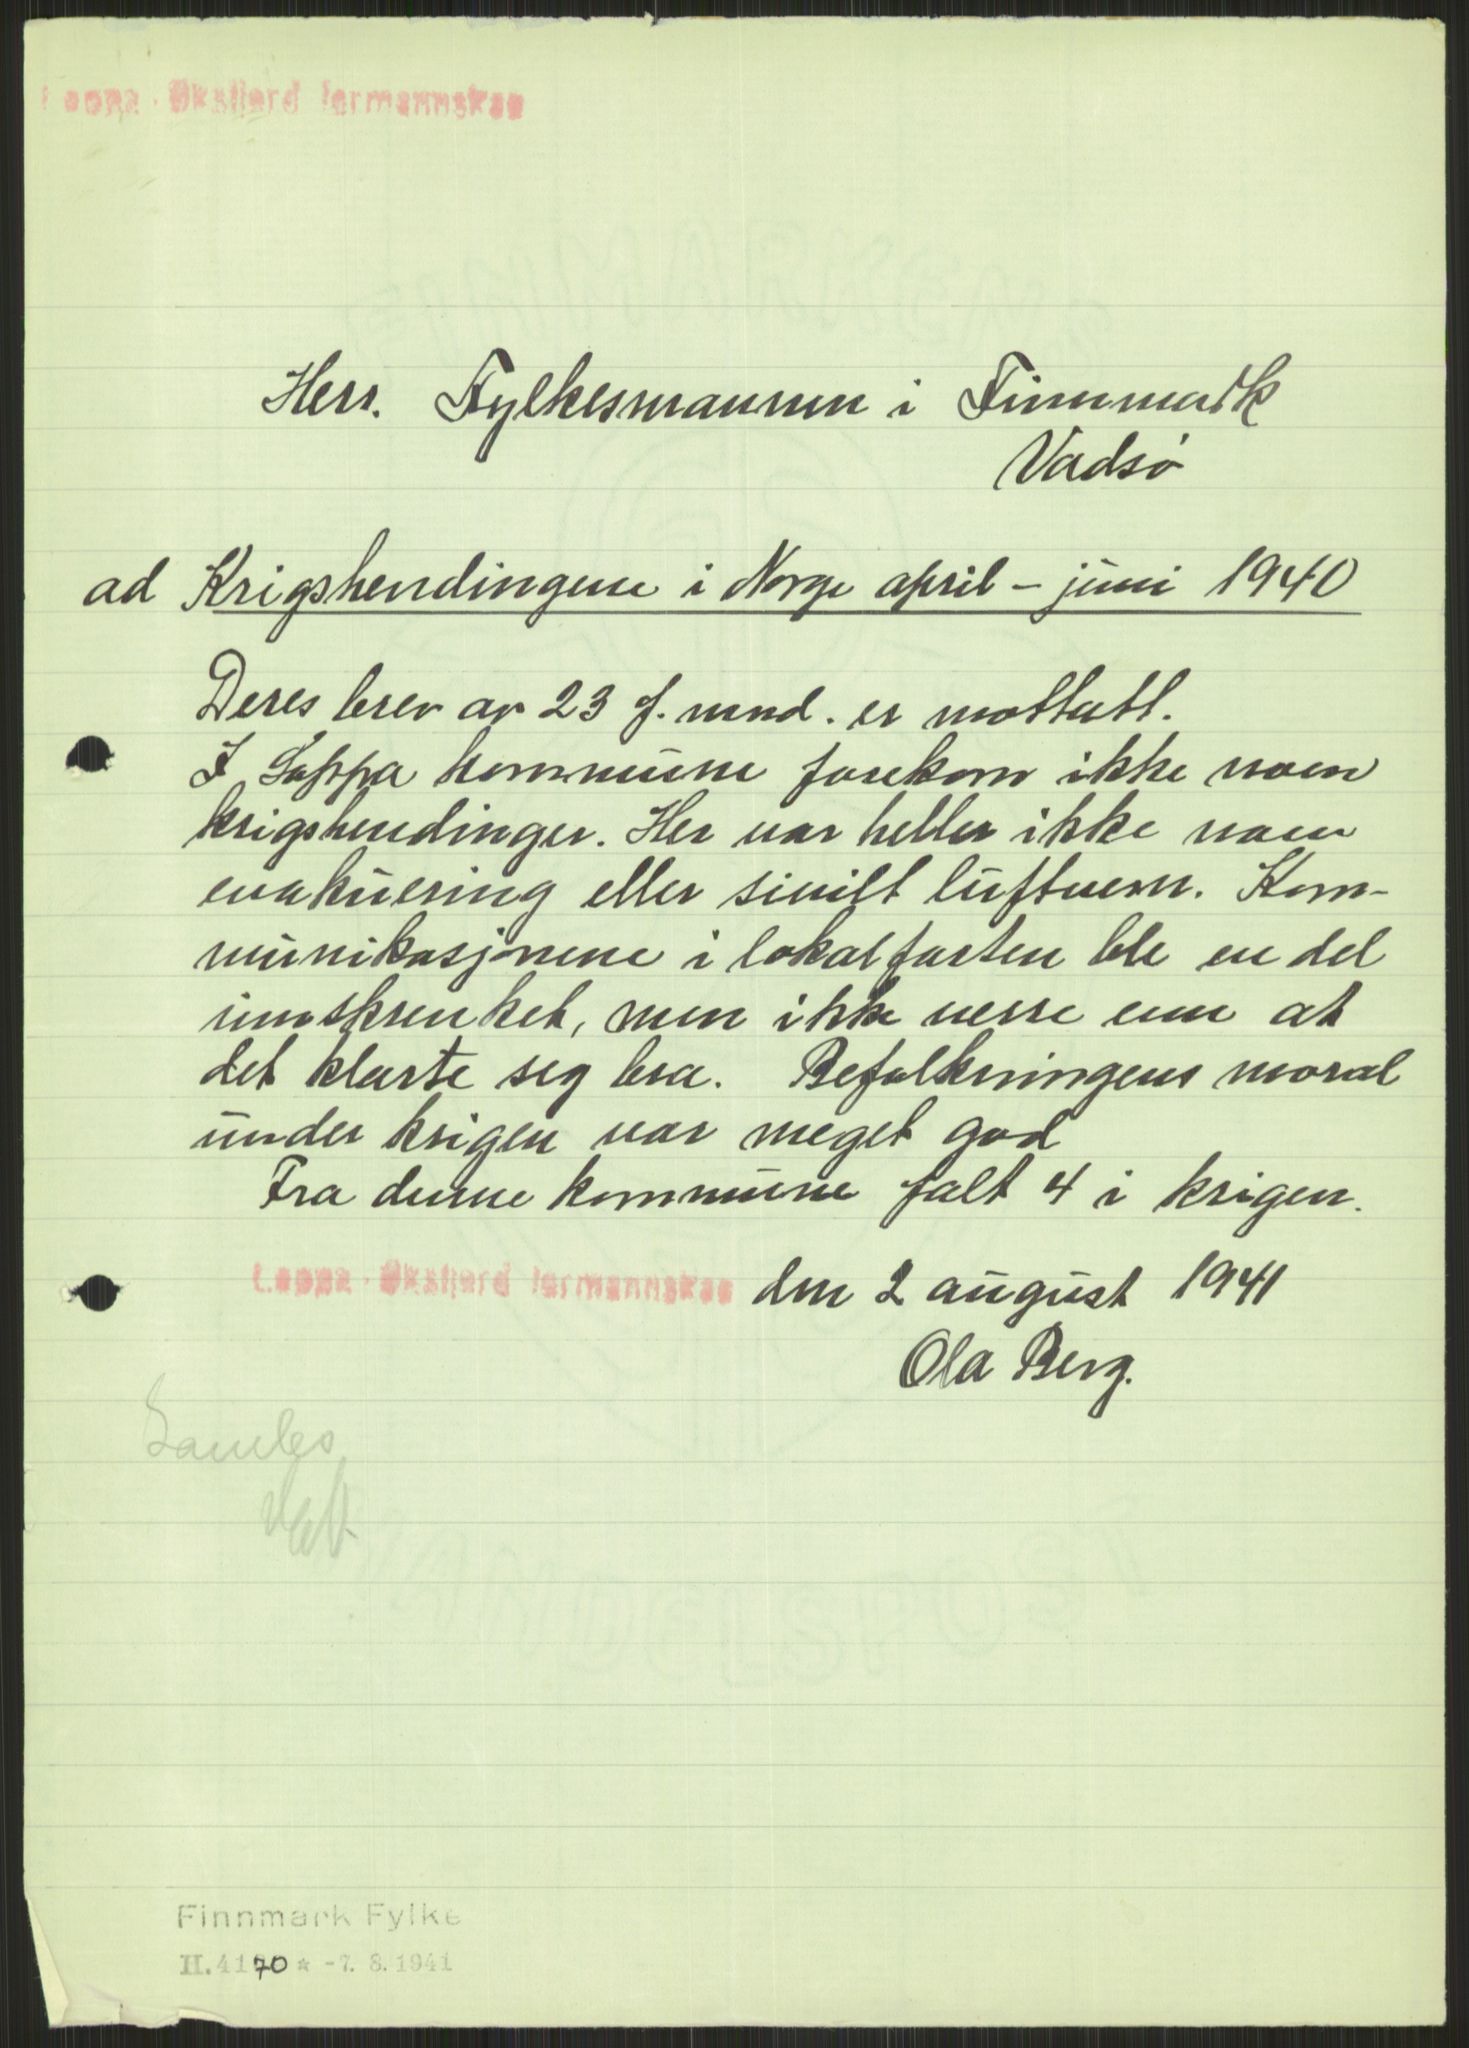 Loppa - Øksfjord formannskap
Herr. Fylkesmannen i Finnmark
Vadsø
ad Krigshendingene i Norge april – juni 1940
Deres brev av 23 f. mnd. er mottatt.
I Loppa kommune forekom ikke noen
krigshendinger. Her var heller ikke noen
evakuering eller sivilt luftvern. Kom-
munikasjonene i lokalfarten ble en del
innskrenket, men ikke verre enn at
det klarte seg bra. Befolkningens moral
under krigen var meget god
Fra denne kommune falt 4 i krigen.
Loppa - Øksfjord formannskap den 2 august 1941
Ola Berg.
Samles
Finnmark Fylke
II. 4170 * -7. 8. 1941